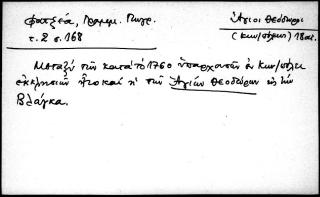 Φατζέα, Γραμμ. Πυγρ.
τ. 2 σ. 168
Ἅγιοι Θεόδωροι
(Κων/πόλεως) 18αι.
Μεταξύ τῶν κατά τό 1760 ὑπαρχουσῶν ἐν Κων/πόλει
ἐκκλησιῶν ἦτο καί ἡ τῶν Ἁγίων Θεοδώρων εἰς τήν
Βλάγκα.